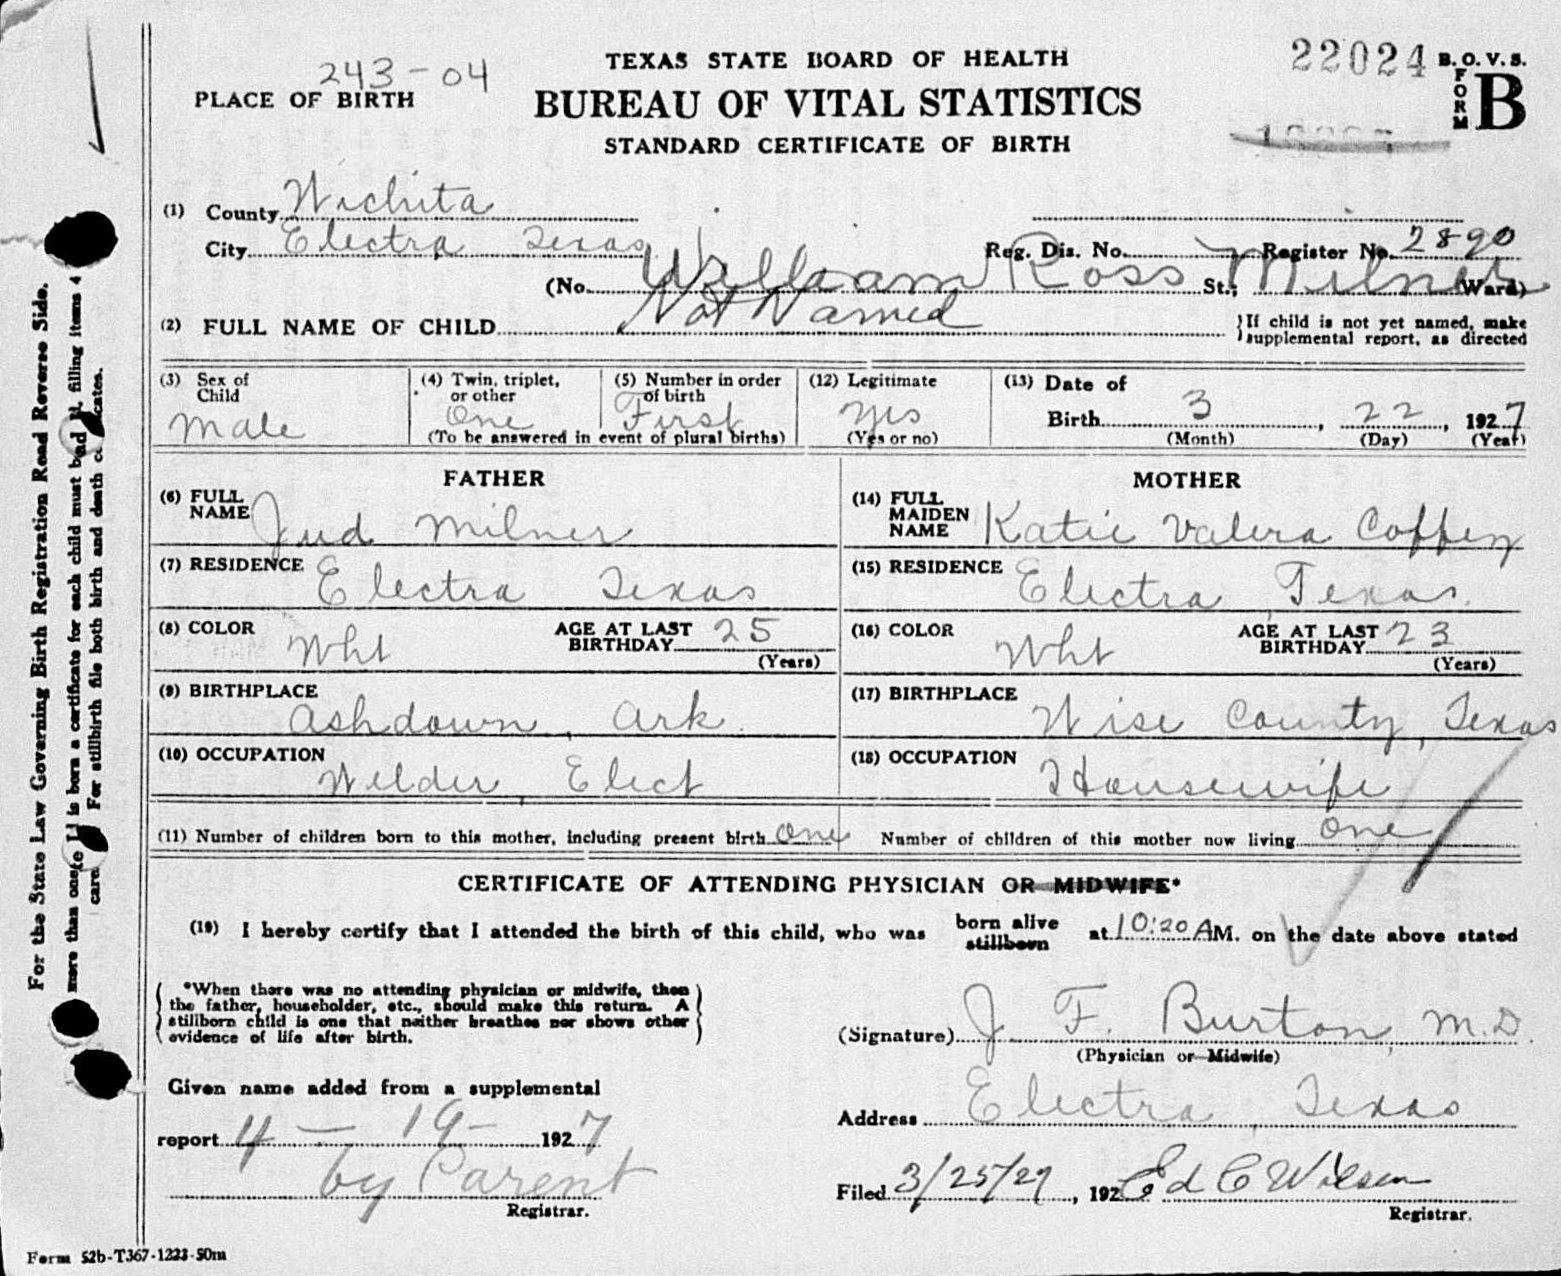 243-04
TEXAS STATE BOARD OF HEALTH
22024
B. O. V. S.
FORM
B
PLACE OF BIRTH
BUREAU OF VITAL STATISTICS
STANDARD CERTIFICATE OF BIRTH
(1) County Wichita
City Electra Texas
Reg. Dis. No. Register No. 2890
(No. St.; Ward)
William Ross Milner
(2) FULL NAME OF CHILD Not Named
}If child is not yet named, make
supplemental report, as directed
(3) Sex of Child Male
(4) Twin, triplet, or other One
(5) Number in order of birth First
(To be answered in event of plural births)
(12) Legitimate yes
(Yes or no)
(13) Date of
Birth 3, 22, 1927
(Month) (Day) (Year)
FATHER
(6) FULL NAME Jud Milner
(7) RESIDENCE Electra Texas
(8) COLOR Wht AGE AT LAST BIRTHDAY 25
(Years)
(9) BIRTHPLACE
Ashdown, Ark.
(10) OCCUPATION
Welder, Elect
MOTHER
(14) FULL MAIDEN NAME Katie Valera Coffey
(15) RESIDENCE Electra, Texas.
(16) COLOR Wht AGE AT LAST BIRTHDAY 23
(Years)
(17) BIRTHPLACE
Wise County, Texas
(18) OCCUPATION
Housewife
(11) Number of children born to this mother, including present birth One Number of children of this mother now living One
CERTIFICATE OF ATTENDING PHYSICIAN OR MIDWIFE*
(19) I hereby certify that I attended the birth of this child, who was born alive stillborn at 10:20 A M. on the date above stated
*When there was no attending physician or midwife, then
the father, householder, etc., should make this return. A
stillborn child is one that neither breathes nor shows other
evidence of life after birth.
(Signature) J. F. Burton, M.D.
(Physician or Midwife)
Given name added from a supplemental
report 4 - 19 - 1927
by Parent
Registrar.
Address Electra, Texas
Filed 3/25/27, 192 Ed C Wilson
Registrar.
Form 52b-T367-1223-50m
For the State Law Governing Birth Registration Read Reverse Side.
more than one is born a certificate for each child must be filling items 4
For stillbirth file both birth and death